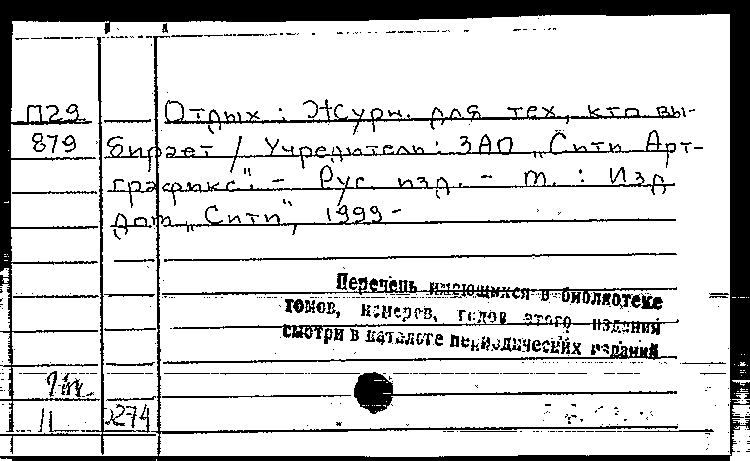 П29 Отдых : Журн. для тех, кто вы-
879 бирает / Учредитель: ЗАО „Сити Арт-
графикс". - Рус. изд. - М. : Изд
дом „Сити", 1999-
Перечень имеющихся в библиотеке
томов, номеров, годов этого издания
смотри в каталоге периодических изданий
11 2274